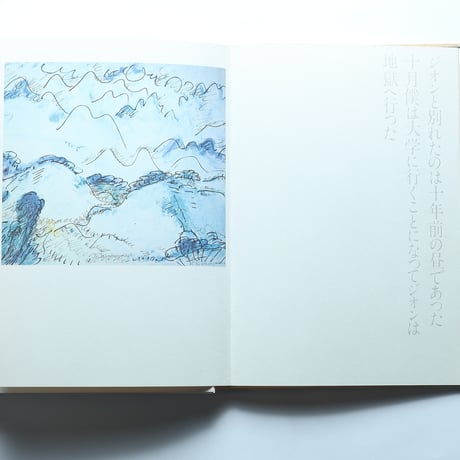 ジオンと別れたのは十年前の昼であった
十月僕は大学に行くことになつてジオンは
地獄へ行つた